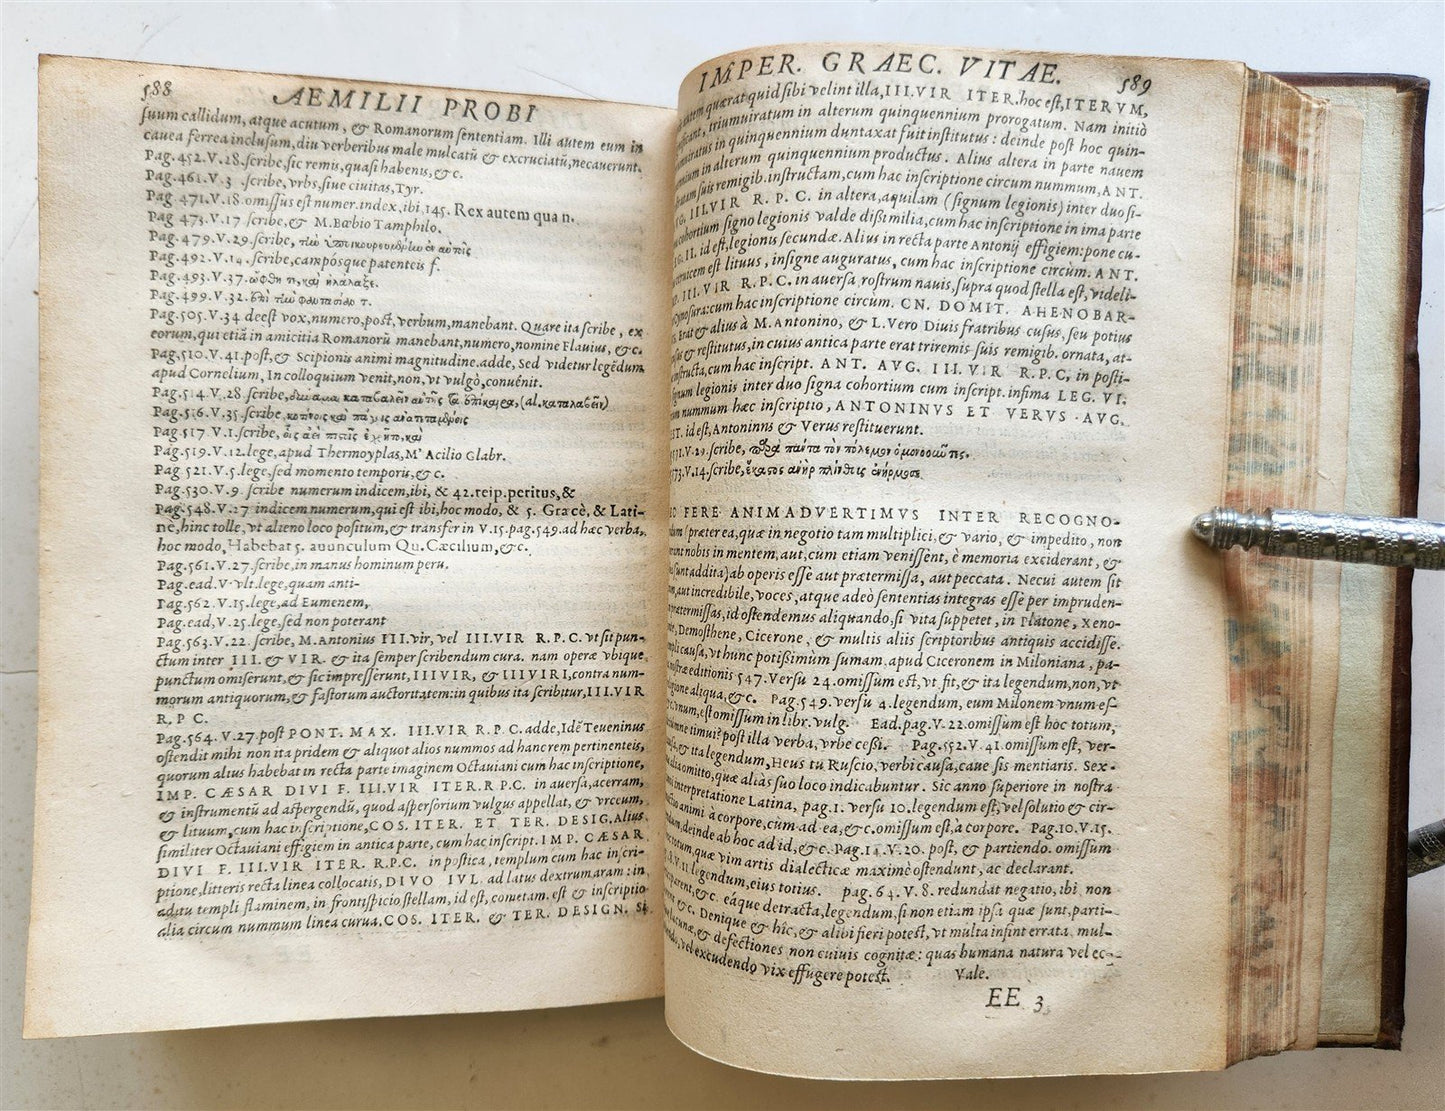 588
AEMILII PROBI
suum callidum, atque acutum, & Romanorum sententiam. Illi autem eum in
cauea ferrea inclusum, diu verberibus male mulcatū & excruciatū, necauerunt.
Pag.452.V.28.scribe, sic remis, quasi habenis, &c.
Pag.461.V.3 .scribe, vrbs, siue ciuitas, Tyr.
Pag.471.V.18.omissus est numer.index, ibi, 145. Rex autem qua n.
Pag.473.V.17 .scribe, & M.Bœbio Tamphilo.
Pag.479.V.29.scribe,
Pag.492.V.14.scribe, campósque patenteis f.
Pag.493.V.37. ὤφθη τι, καὶ ἠλάλαξε.
Pag.499.V.32.
Pag.505.V.34 deest vox, numero, post, verbum, manebant. Quare ita scribe, ex
eorum, qui etiā in amicitia Romanorū manebant, numero, nomine Flauius, &c.
Pag.510.V.41.post, & Scipionis animi magnitudine.adde, Sed videtur legēdum
apud Cornelium, In colloquium venit, non, vt vulgò, conuēnit.
Pag.514.V.28.scribe,
Pag.516.V.35.scribe
Pag.517.V.1.scribe,
Pag.519.V.12.lege, apud Thermoyplas, M' Acilio Glabr.
Pag 521.V.5.lege, sed momento temporis, &c.
Pag.530.V.9. scribe numerum indicem, ibi, & 42.reip.peritus, &
Pag.548.V.27 indicem numerum, qui est ibi, hoc modo, & 5. Græcè, & Lati-
nè, hinc tolle, vt alieno loco positum, & transfer in V.15.pag.549.ad hæc verba,
hoc modo, Habebat 5. auunculum Qu. Cæcilium, &c.
Pag.561.V.27.scribe, in manus hominum peru.
Pag.ead.V.vlt.lege, quam anti-
Pag.562.V.15.lege, ad Eumenem,
Pag.ead.V.25.lege, sed non poterant
Pag.563.V.22. scribe, M.Antonius III.vir, vel III.VIR R.P.C. vt sit pun-
ctum inter III. & VIR. & ita semper scribendum cura. nam operæ vbique
punctum omiserunt, & sic impresserunt, IIIVIR, & IIIVIRI, contra num-
morum antiquorum, & fastorum auctoritatem: in quibus ita scribitur, III.VIR
R, P C.
Pag.564.V.27.post PONT. MAX. III.VIR R.P.C. adde, Idē Teueninus
ostendit mihi non ita pridem & aliquot alios nummos ad hanc rem pertinenteis,
quorum alius habebat in recta parte imaginem Octauiani cum hac inscriptione,
IMP. CÆSAR DIVI F. III.VIR ITER.R.P.C. in auersa, acerram,
& instrumentū ad aspergendū, quod aspersorium vulgus appellat, & vrceum,
& lituum, cum hac inscriptione, COS. ITER. ET TER. DESIG.Alius
similiter Octauiani effigiem in antica parte, cum hac inscript.IMP. CÆSAR
DIVI F. III.VIR ITER. R.P.C. in postica, templum cum hac inscri-
ptione, litteris recta linea collocatis, DIVO IVL. ad latus dextrum aram: in
aditu templi flaminem, in frontispicio stellam, id est, cometam. est & inscriptio
alia circum nummum linea curua. COS. ITER. & TER. DESIGN. Si
IMPER. GRAEC. VITAE. 589
autem quærat quid sibi velint illa, III.VIR ITER. hoc est, ITERVM,
triumuiratum in alterum quinquennium prorogatum. Nam initiò
in quinquennium duntaxat fuit institutus: deinde post hoc quin-
in alterum quinquennium productus. Alius altera in parte nauem
suis remigib.instructam, cum hac inscriptione circum nummum, ANT.
III.VIR R. P. C. in altera, aquilam (signum legionis) inter duo si-
cohortium signo legionis valde dissimilia, cum hac inscriptione in ima parte
II. id est, legionis secundæ. Alius in recta parte Antonij effigiem: pone cu-
est lituus, insigne auguratus, cum hac inscriptione circum. ANT.
III. VIR R.P.C. in auersa rostrum nauis, supra quod stella est, videli-
cum hac inscriptione circum. CN. DOMIT. AHENOBAR-
Erat & alius à M. Antonino, & L.Vero Diuis fratribus cusus, seu potius
& restitutus, in cuius antica parte erat triremis suis remigib. ornata, at-
cum hac inscript. ANT. AVG. III.VIR R.P.C, in posti-
signum legionis inter duo signa cohortium cum inscript.infima LEG. VI.
nummum hæc inscriptio, ANTONINVS ET VERVS AVG.
id est, Antoninus & Verus restituerunt.
V.29.scribe,
V.14.scribe,
FERE ANIMADVERTIMVS INTER RECOGNO-
(præterea, quæ in negotio tam multiplici, & vario, & impedito, non
nobis in mentem, aut, cùm etiam venissent, è memoria exciderant, &
sunt addita) ab operis esse aut prætermissa, aut peccata. Necui autem sit
aut incredibile, voces, atque adeò sententias integras esse per impruden-
prætermissas, id ostendemus aliquando, si vita suppetet, in Platone, Xeno-
Demosthene, Cicerone, & multis aliis scriptoribus antiquis accidisse.
causa, vt hunc potissimum sumam, apud Ciceronem in Miloniana, pa-
editionis 547. Versu 24.omissum est, vt fit, & ita legendum, non, vt
aliqua, &c. Pag.549. versu 4. legendum, eum Milonem vnum es-
vnum, est omissum in libr. vulg. Ead.pag.V.22.omissum est hoc totum,
timui? post illa verba, vrbe cessi. Pag.552.V.41.omissum est, ver-
& ita legendum, Heus tu Ruscio, verbi causa, caue sis mentiaris. Sex-
alia omitto, quæ aliàs suo loco indicabuntur. Sic anno superiore in nostra
interpretatione Latina, pag.1. versu 10.legendum est, vel solutio & cir-
animi à corpore, cùm ad ea, &c.omissum est, à corpore. Pag.10.V.15.
deinde ab hoc ad id, &c. Pag.14.V.20. post, & partiendo. omissum
totum, quæ vim artis dialecticæ maximè ostendunt, ac declarant.
V.11 legendum, eius totius. pag.64.V.8. redundat negatio, ibi non
&c. eáque detracta, legendum, si non etiam ipsa quæ sunt, parti-
&c. Denique & hîc, & alibi fieri potest, vt multa insint errata, mul-
& defectiones non cuiuis cognitæ: quas humana natura vel ec-
vel excudendo vix effugere potest. Vale.
EE 3